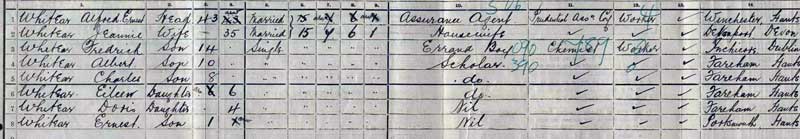 1 Whitear Alfred Ernest Head 43 Married 15 Assurance Agent Prudential Assce Coy Worker Winchester, Hants
2 Whitear Jeannie Wife – 35 Married 15 7 6 1 Housewife Devonport Devon
3 Whitear Fredrick Son 14 Single Errand Boy 090 Chemist Worker Inchicore Dublin
4 Whitear Albert Son 10 Scholar 390 Fareham Hants
5 Whitear Charles Son 8 do Fareham Hants
6 Whitear Eileen Daughter 6 do Fareham Hants
7 Whitear Doris Daughter 4 Nil Fareham Hants
8 Whitear Ernest. Son 1 Nil Portsmouth Hants